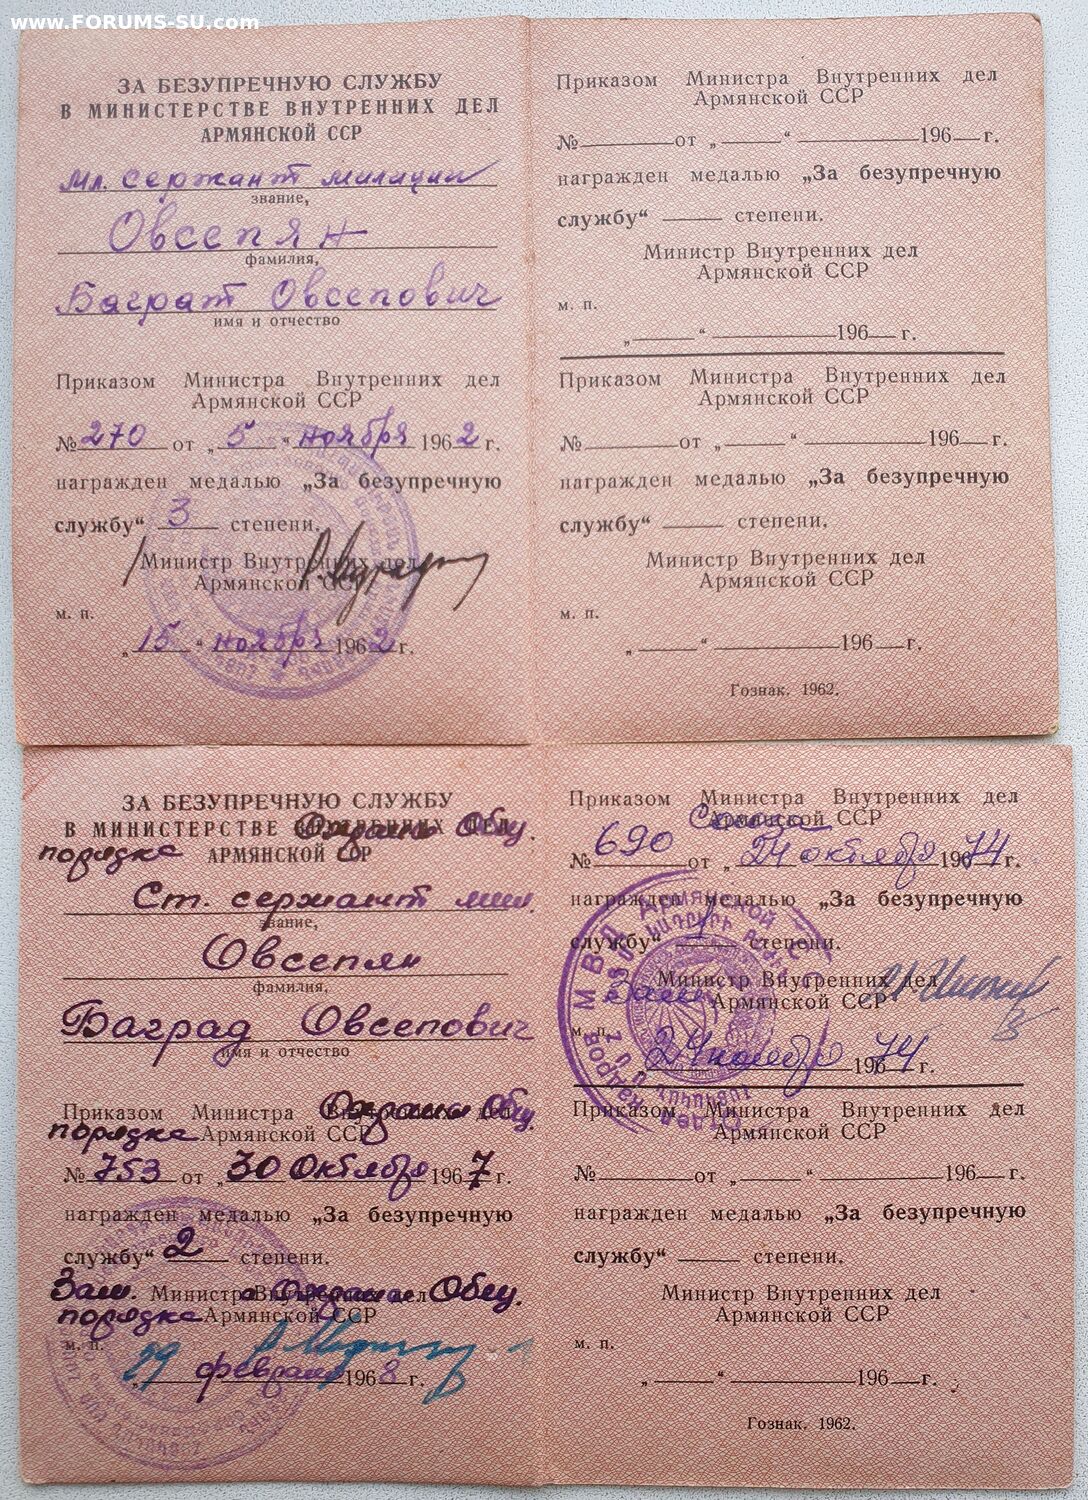 www.FORUMS-SU.com
ЗА БЕЗУПРЕЧНУЮ СЛУЖБУ
В МИНИСТЕРСТВЕ ВНУТРЕННИХ ДЕЛ
АРМЯНСКОЙ ССР
Мл. сержант милиции
звание,
Овсепян
фамилия,
Баграт Овсепович
имя и отчество
Приказом Министра Внутренних дел
Армянской ССР
№ 270 от „5“ ноября 1962 г.
награжден медалью „За безупречную
службу“ 3 степени.
Министр Внутренних дел
Армянской ССР
м. п.
„15“ ноября 1962 г.
Приказом Министра Внутренних дел
Армянской ССР
№ от „ “ 196 г.
награжден медалью „За безупречную
службу“ степени.
Министр Внутренних дел
Армянской ССР
м. п.
„ “ 196 г.
Приказом Министра Внутренних дел
Армянской ССР
№ от „ “ 196 г.
награжден медалью „За безупречную
службу“ степени.
Министр Внутренних дел
Армянской ССР
м. п.
„ “ 196 г.
Гознак. 1962.
ЗА БЕЗУПРЕЧНУЮ СЛУЖБУ
В МИНИСТЕРСТВЕ ВНУТРЕННИХ ДЕЛ Охраны Общ.
порядка АРМЯНСКОЙ ССР
Ст. сержант мил.
звание,
Овсепян
фамилия,
Баград Овсепович
имя и отчество
Приказом Министра Внутренних дел Охраны Общ.
порядка Армянской ССР
№ 753 от „30 Октября 1967 г.
награжден медалью „За безупречную
службу“ 2 степени.
Зам. Министр Внутренних дел а Охраны Общ.
порядка Армянской ССР
м. п.
„29 февраля 1968 г.
Приказом Министра Внутренних дел
Армянской ССР Союза
№ 690 от „24 октября 196 74 г.
награжден медалью „За безупречную
службу“ 1 степени.
Министр Внутренних дел
Зам. Армянской ССР
м. п.
„24 ноября 196 74 г.
МВД Армянской ССР
Отдел кадров
Приказом Министра Внутренних дел
Армянской ССР
№ от „ “ 196 г.
награжден медалью „За безупречную
службу“ степени.
Министр Внутренних дел
Армянской ССР
м. п.
„ “ 196 г.
Гознак. 1962.